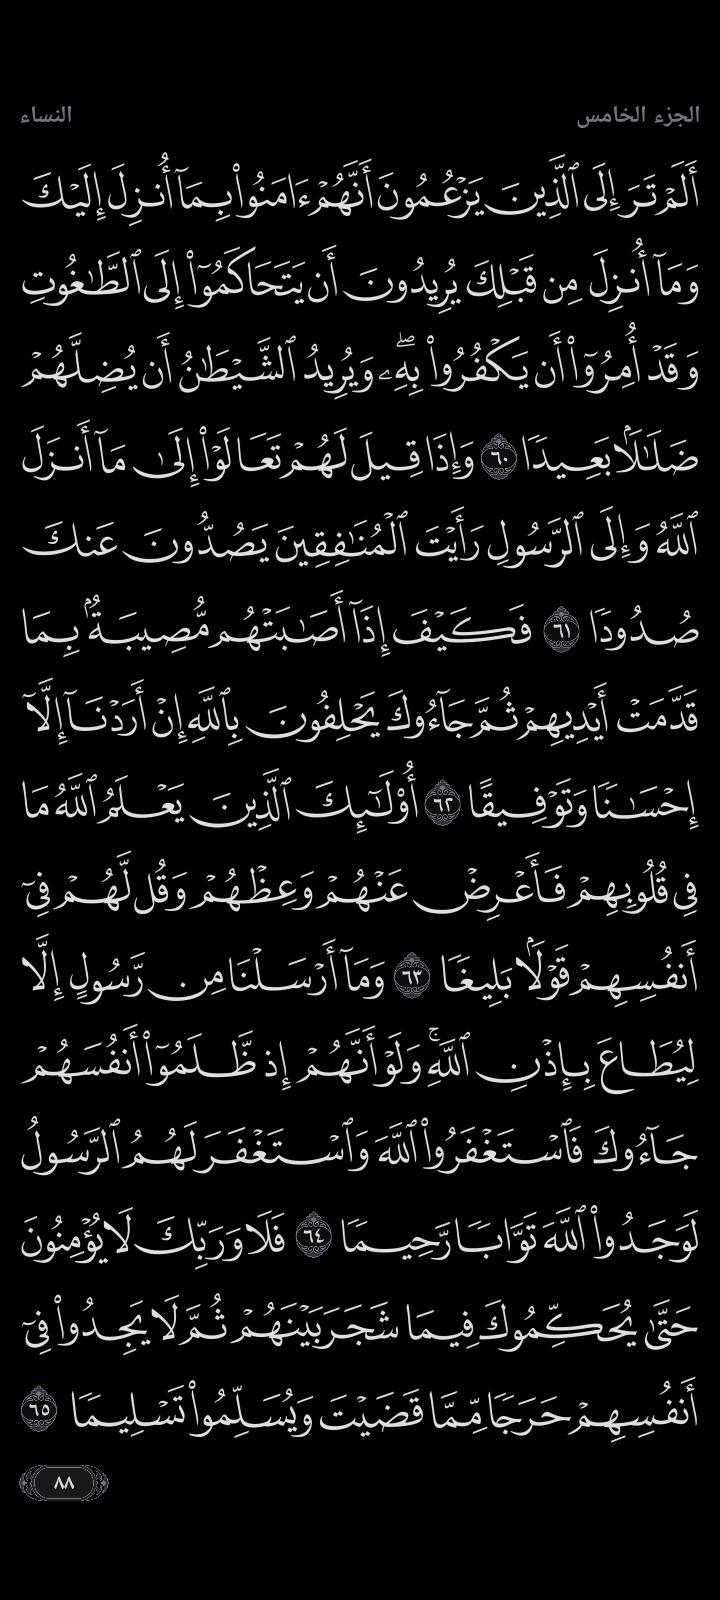 الجزء الخامس
النساء
أَلَمْ تَرَ إِلَى ٱلَّذِينَ يَزْعُمُونَ أَنَّهُمْ ءَامَنُوا۟ بِمَآ أُنزِلَ إِلَيْكَ
وَمَآ أُنزِلَ مِن قَبْلِكَ يُرِيدُونَ أَن يَتَحَاكَمُوٓا۟ إِلَى ٱلطَّـٰغُوتِ
وَقَدْ أُمِرُوٓا۟ أَن يَكْفُرُوا۟ بِهِۦۖ وَيُرِيدُ ٱلشَّيْطَـٰنُ أَن يُضِلَّهُمْ
ضَلَـٰلًۢا بَعِيدًا ٦٠ وَإِذَا قِيلَ لَهُمْ تَعَالَوْا۟ إِلَىٰ مَآ أَنزَلَ
ٱللَّهُ وَإِلَى ٱلرَّسُولِ رَأَيْتَ ٱلْمُنَـٰفِقِينَ يَصُدُّونَ عَنكَ
صُدُودًا ٦١ فَكَيْفَ إِذَآ أَصَـٰبَتْهُم مُّصِيبَةٌۢ بِمَا
قَدَّمَتْ أَيْدِيهِمْ ثُمَّ جَآءُوكَ يَحْلِفُونَ بِٱللَّهِ إِنْ أَرَدْنَآ إِلَّآ
إِحْسَـٰنًا وَتَوْفِيقًا ٦٢ أُو۟لَـٰٓئِكَ ٱلَّذِينَ يَعْلَمُ ٱللَّهُ مَا
فِى قُلُوبِهِمْ فَأَعْرِضْ عَنْهُمْ وَعِظْهُمْ وَقُل لَّهُمْ فِىٓ
أَنفُسِهِمْ قَوْلًۢا بَلِيغًا ٦٣ وَمَآ أَرْسَلْنَا مِن رَّسُولٍ إِلَّا
لِيُطَاعَ بِإِذْنِ ٱللَّهِۚ وَلَوْ أَنَّهُمْ إِذ ظَّلَمُوٓا۟ أَنفُسَهُمْ
جَآءُوكَ فَٱسْتَغْفَرُوا۟ ٱللَّهَ وَٱسْتَغْفَرَ لَهُمُ ٱلرَّسُولُ
لَوَجَدُوا۟ ٱللَّهَ تَوَّابًا رَّحِيمًا ٦٤ فَلَا وَرَبِّكَ لَا يُؤْمِنُونَ
حَتَّىٰ يُحَكِّمُوكَ فِيمَا شَجَرَ بَيْنَهُمْ ثُمَّ لَا يَجِدُوا۟ فِىٓ
أَنفُسِهِمْ حَرَجًا مِّمَّا قَضَيْتَ وَيُسَلِّمُوا۟ تَسْلِيمًا ٦٥
٨٨